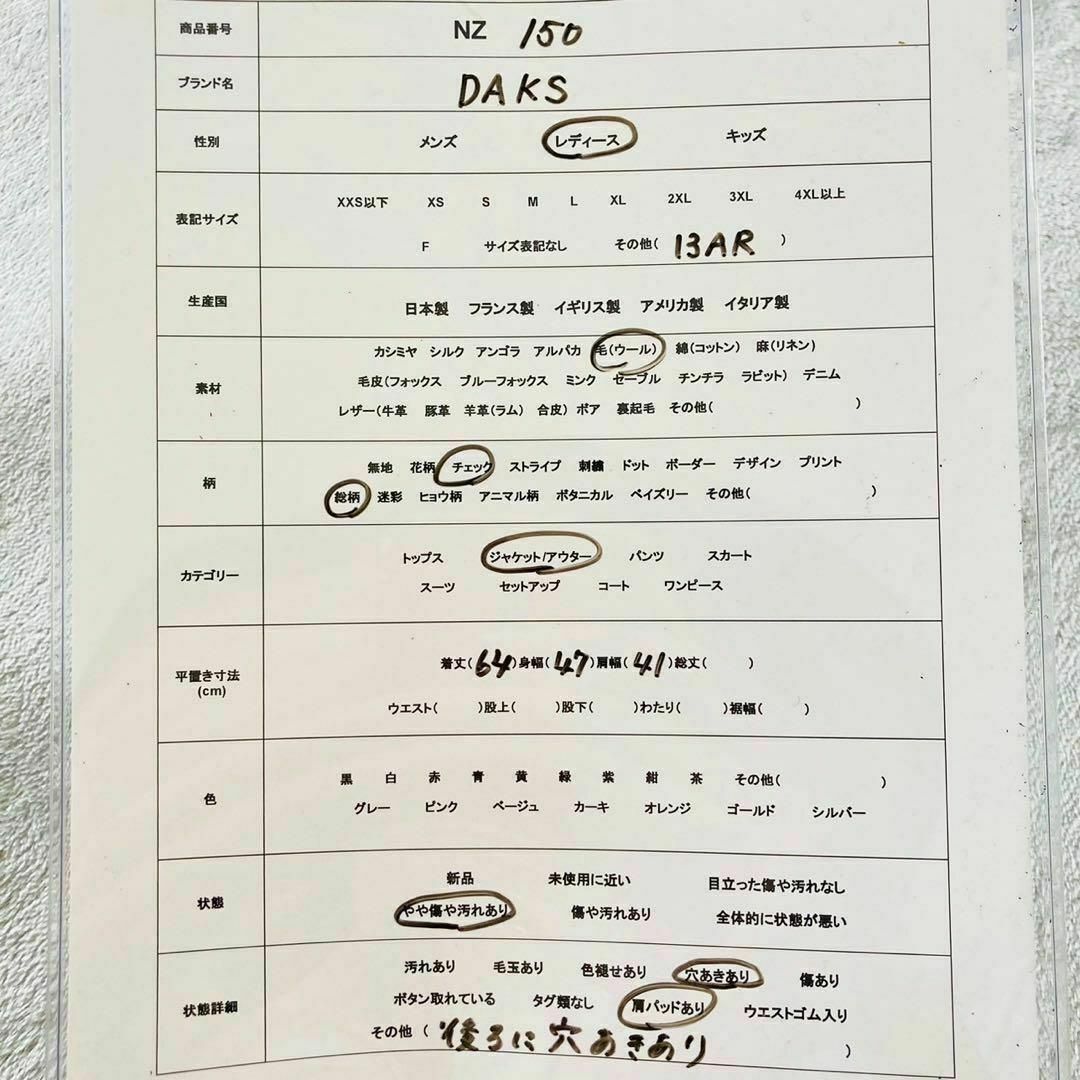 商品番号 NZ 150
ブランド名 DAKS
性別 メンズ レディース キッズ
表記サイズ
XXS以下 XS S M L XL 2XL 3XL 4XL以上
F サイズ表記なし その他( 13AR )
生産国 日本製 フランス製 イギリス製 アメリカ製 イタリア製
素材
カシミヤ シルク アンゴラ アルパカ 毛(ウール) 綿(コットン) 麻(リネン)
毛皮(フォックス ブルーフォックス ミンク セーブル チンチラ ラビット) デニム
レザー(牛革 豚革 羊革(ラム) 合皮) ボア 裏起毛 その他( )
柄
無地 花柄 チェック ストライプ 刺繍 ドット ボーダー デザイン プリント
総柄 迷彩 ヒョウ柄 アニマル柄 ボタニカル ペイズリー その他( )
カテゴリー
トップス ジャケット/アウター パンツ スカート
スーツ セットアップ コート ワンピース
平置き寸法
(cm)
着丈(64)身幅(47)肩幅(41)総丈( )
ウエスト( )股上( )股下( )わたり( )裾幅( )
色
黒 白 赤 青 黄 緑 紫 紺 茶 その他( )
グレー ピンク ベージュ カーキ オレンジ ゴールド シルバー
状態
新品 未使用に近い 目立った傷や汚れなし
やや傷や汚れあり 傷や汚れあり 全体的に状態が悪い
状態詳細
汚れあり 毛玉あり 色褪せあり 穴あきあり 傷あり
ボタン取れている タグ類なし 肩パッドあり ウエストゴム入り
その他 ( 後ろに穴あきあり )